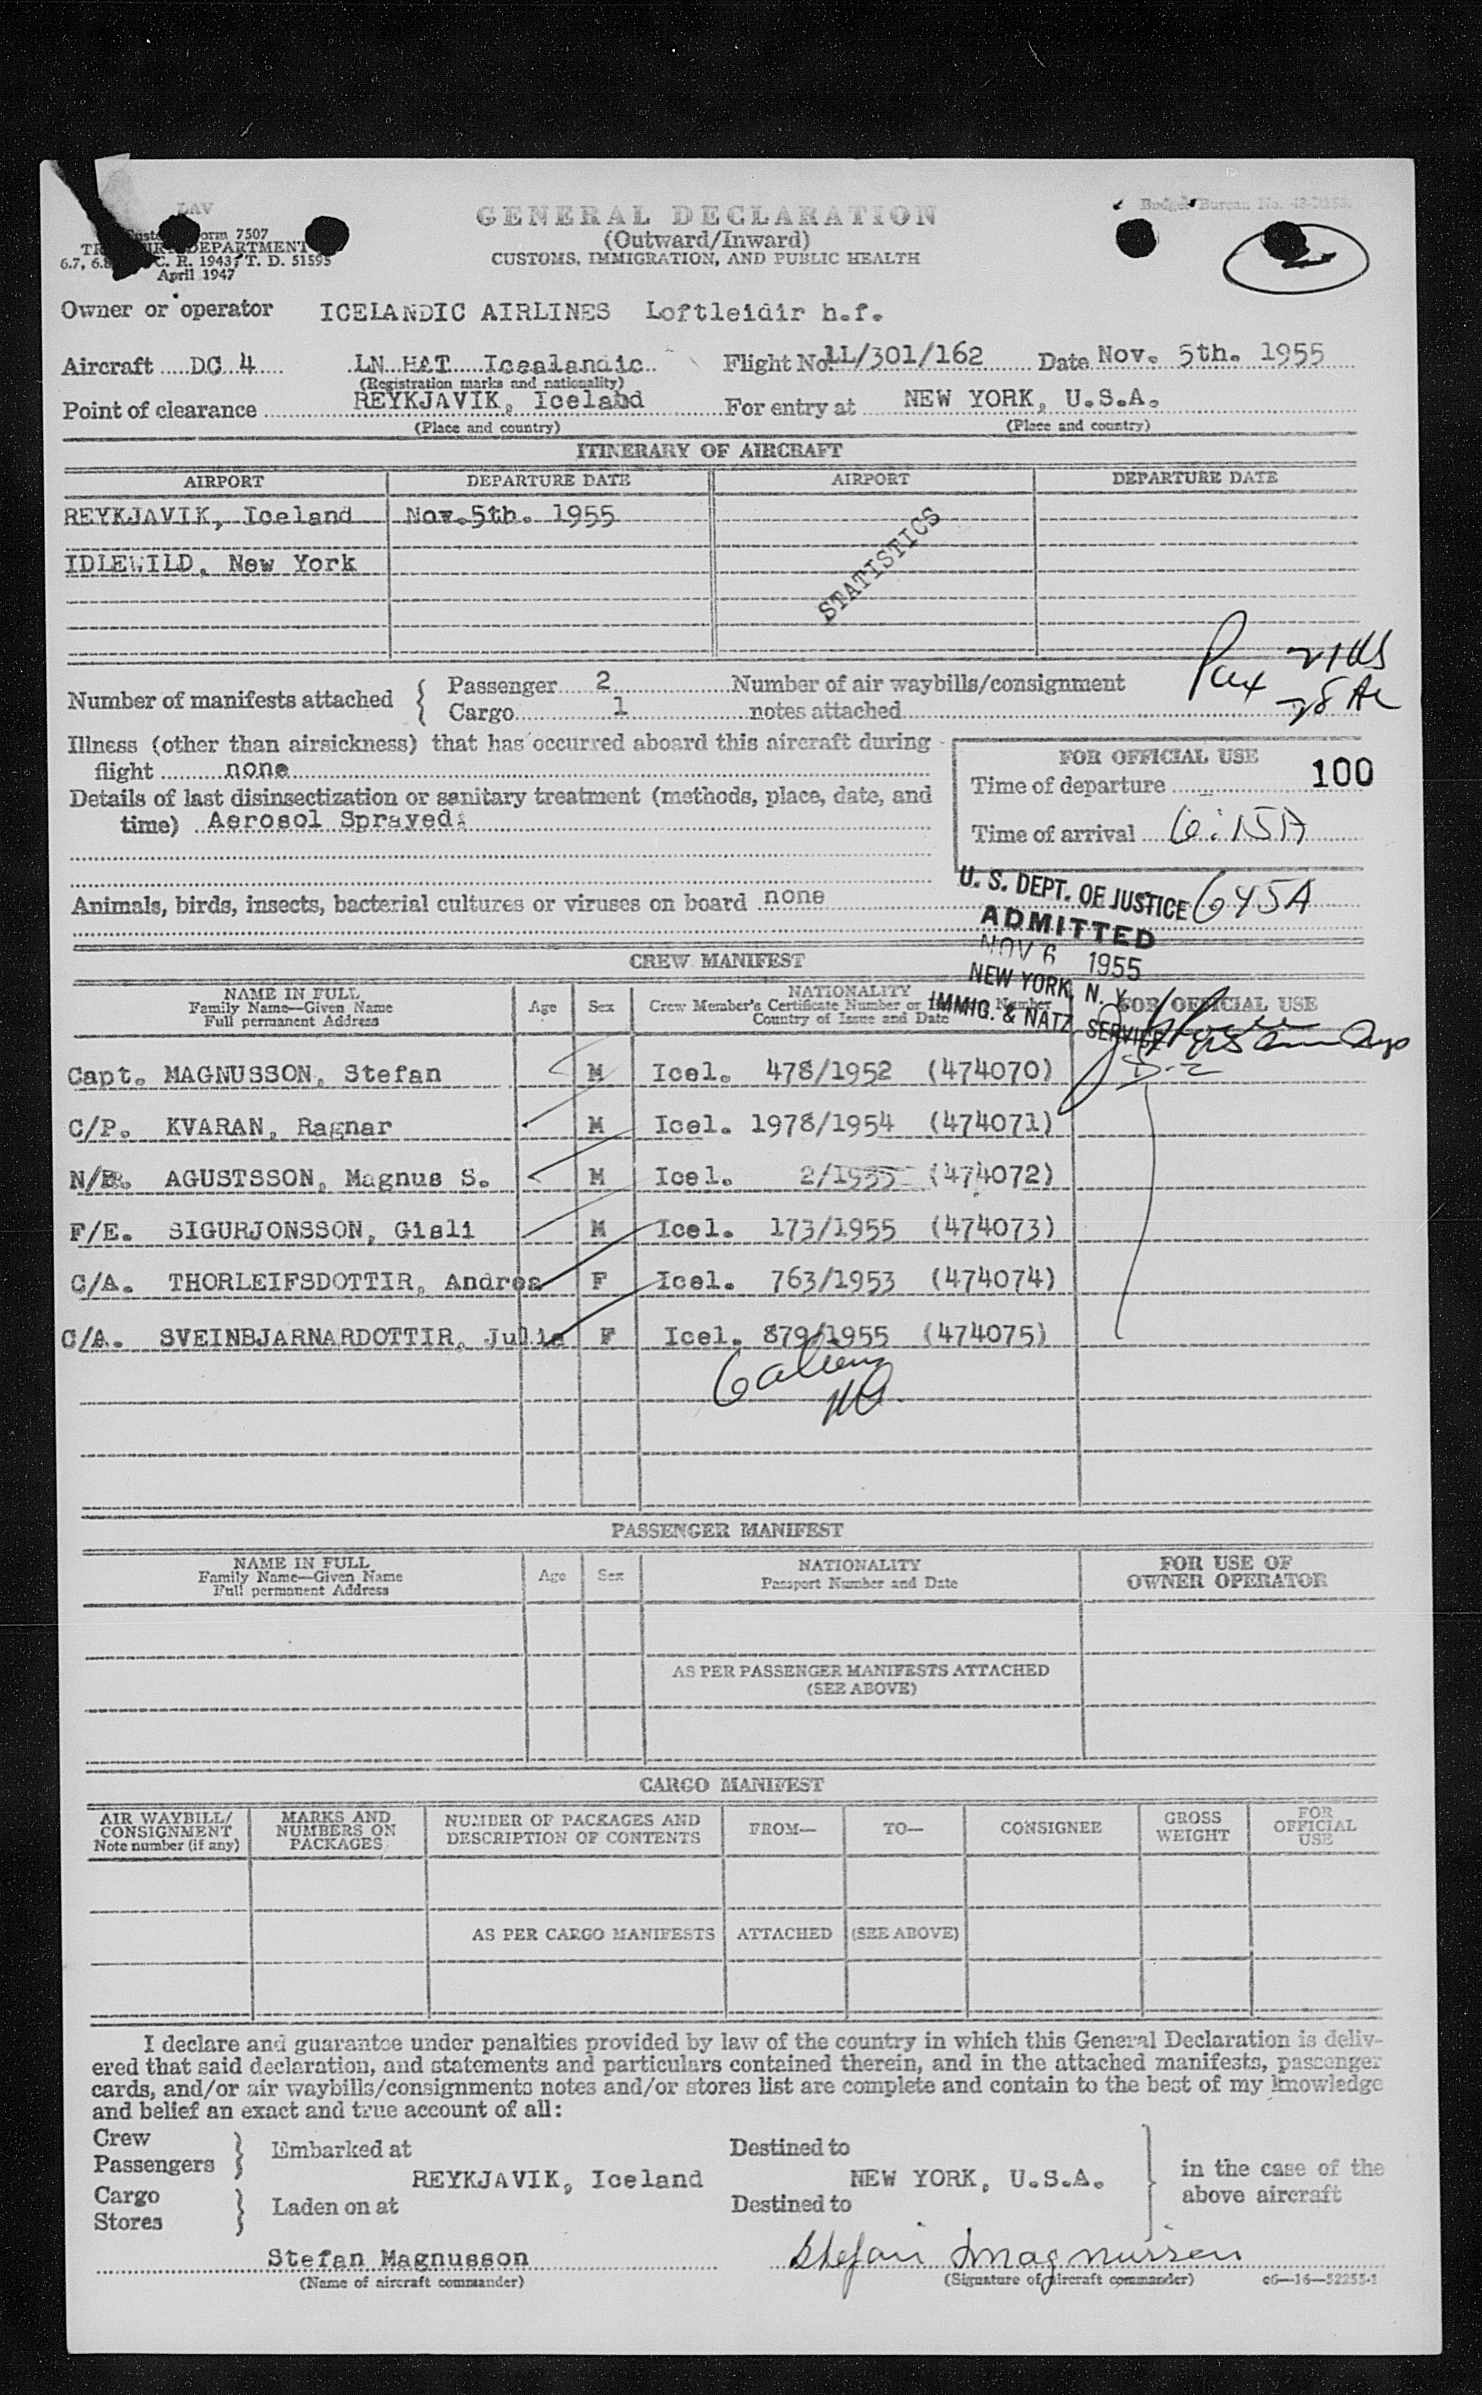 LAV
Form 7507
TREASURY DEPARTMENT
C. R. 1943; T. D. 51595
April 1947
GENERAL DECLARATION
(Outward/Inward)
CUSTOMS, IMMIGRATION, AND PUBLIC HEALTH
Budget Bureau No.
2
Owner or operator ICELANDIC AIRLINES Loftleidir h.f.
Aircraft DC 4 LN HAT Icealandic Flight No. LL/301/162 Date Nov. 5th. 1955
(Registration marks and nationality)
Point of clearance REYKJAVIK, Icelabd For entry at NEW YORK, U.S.A.
(Place and country) (Place and country)
ITINERARY OF AIRCRAFT
AIRPORT DEPARTURE DATE AIRPORT DEPARTURE DATE
REYKJAVIK, Iceland Nov.5th. 1955
IDLEWILD, New York
STATISTICS
Pax 21 US
28 AL
Number of manifests attached { Passenger 2 Number of air waybills/consignment
Cargo 1 notes attached
Illness (other than airsickness) that has occurred aboard this aircraft during
flight none
Details of last disinsectization or sanitary treatment (methods, place, date, and
time) Aerosol Sprayed
FOR OFFICIAL USE
Time of departure 100
Time of arrival 6:15A
645A
Animals, birds, insects, bacterial cultures or viruses on board none
U. S. DEPT. OF JUSTICE
ADMITTED
NOV 6 1955
NEW YORK, N. Y.
IMMIG. & NATZ. SERVICE
CREW MANIFEST
NAME IN FULL
Family Name—Given Name
Full permanent Address
Age Sex
NATIONALITY
Crew Member's Certificate Number or Number
Country of Issue and Date
FOR OFFICIAL USE
D-2
Capt. MAGNUSSON, Stefan M Icel. 478/1952 (474070)
C/P. KVARAN, Ragnar M Icel. 1978/1954 (474071)
N/R. AGUSTSSON, Magnus S. M Icel. 2/1955 (474072)
F/E. SIGURJONSSON, Gisli M Icel. 173/1955 (474073)
C/A. THORLEIFSDOTTIR, Andrea F Icel. 763/1953 (474074)
C/A. SVEINBJARNARDOTTIR, Julia F Icel. 879/1955 (474075)
6 aliens
PASSENGER MANIFEST
NAME IN FULL
Family Name—Given Name
Full permanent Address
Age Sex
NATIONALITY
Passport Number and Date
FOR USE OF
OWNER OPERATOR
AS PER PASSENGER MANIFESTS ATTACHED
(SEE ABOVE)
CARGO MANIFEST
AIR WAYBILL/
CONSIGNMENT
Note number (if any)
MARKS AND
NUMBERS ON
PACKAGES
NUMBER OF PACKAGES AND
DESCRIPTION OF CONTENTS
FROM— TO— CONSIGNEE
GROSS
WEIGHT
FOR
OFFICIAL
USE
AS PER CARGO MANIFESTS ATTACHED (SEE ABOVE)
I declare and guarantee under penalties provided by law of the country in which this General Declaration is deliv-
ered that said declaration, and statements and particulars contained therein, and in the attached manifests, passenger
cards, and/or air waybills/consignments notes and/or stores list are complete and contain to the best of my knowledge
and belief an exact and true account of all:
Crew
Passengers } Embarked at Destined to
REYKJAVIK, Iceland NEW YORK, U.S.A. } in the case of the
above aircraft
Cargo
Stores } Laden on at Destined to
Stefan Magnusson Stefan Magnussen
(Name of aircraft commander) (Signature of aircraft commander) c6—16—52255-1